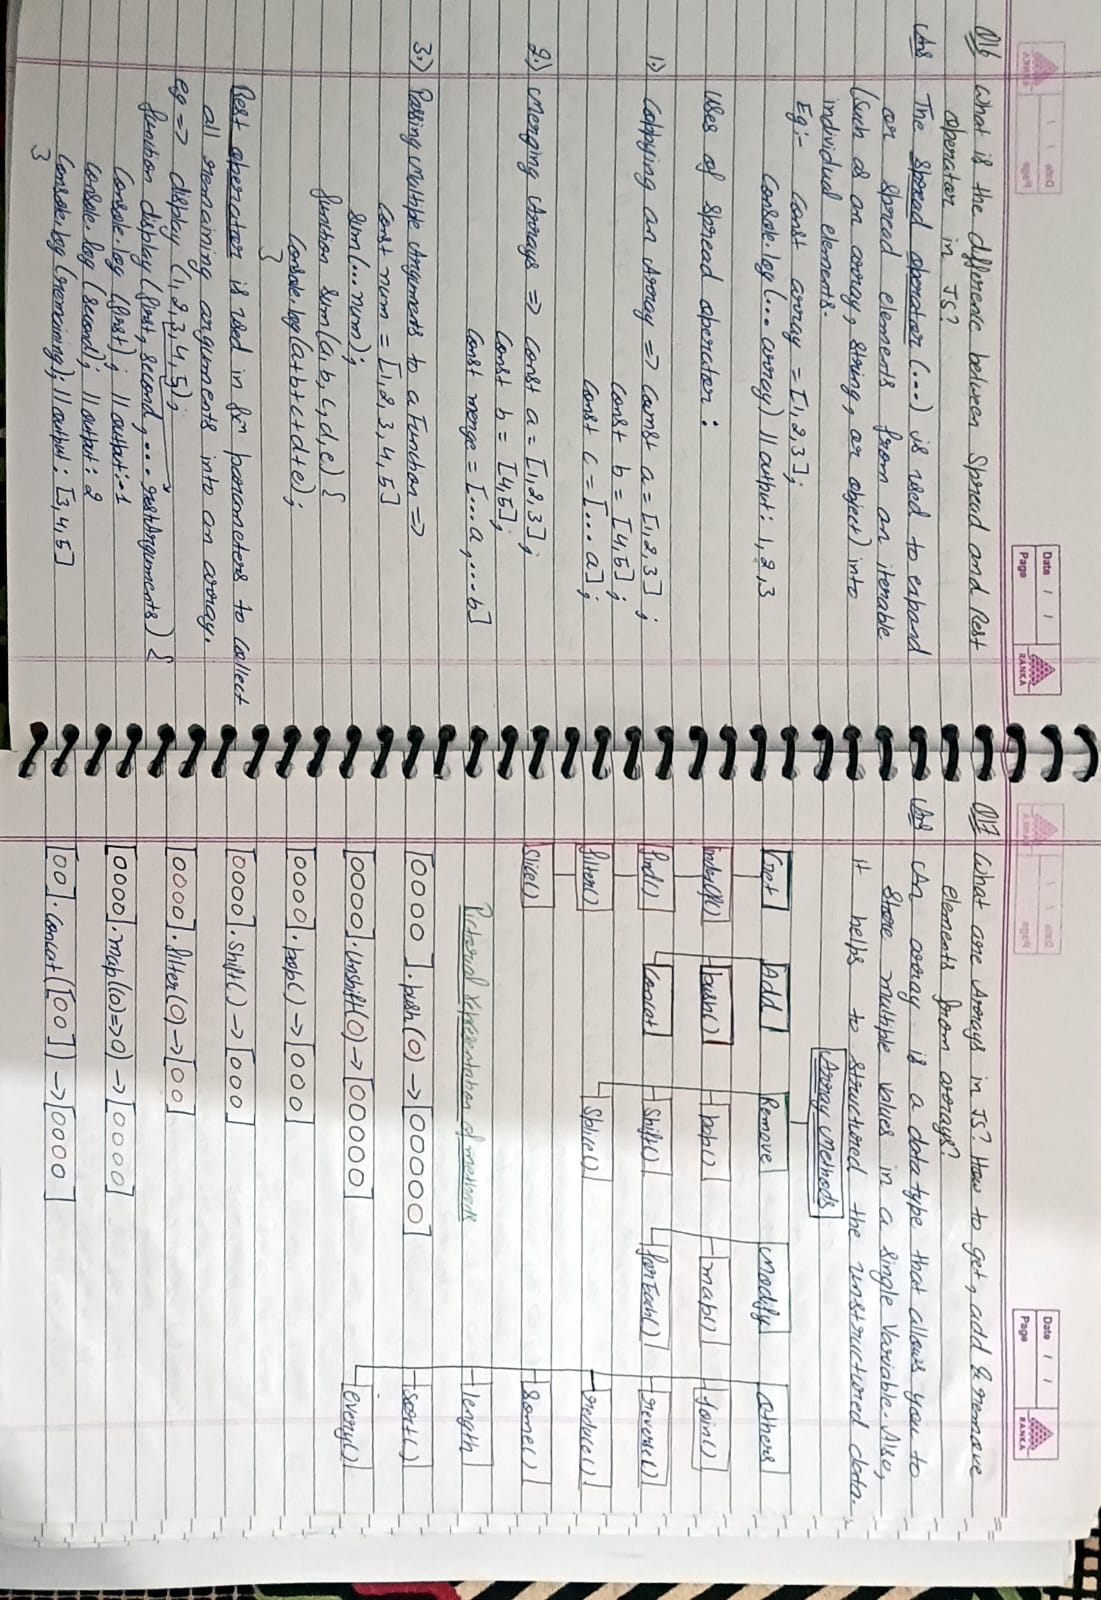 Date / /
Page
RANKA
Q16 What is the difference between Spread and Rest
operator in JS?
Ans The Spread operator (...) is used to expand
or spread elements from an iterable
(such as an array, string, or object) into
individual elements.
Eg:- Const array = [1,2,3];
Console.log(...array) // output: 1,2,3
Uses of Spread operator:
1.) Coppying an Array => Const a = [1,2,3];
Const b = [4,5];
Const c = [...a];
2.) Merging Arrays => Const a = [1,2,3];
Const b = [4,5];
Const merge = [...a,...b]
3.) Passing Multiple Arguments to a Function =>
Const num = [1,2,3,4,5]
Sum(...num);
function Sum(a,b,c,d,e) {
Console.log(a+b+c+d+e);
}
Rest operator is used in fxⁿ parameters to collect
all remaining arguments into an array.
eg => display (1,2,3,4,5);
function display (first, second, ...restArguments) {
Console.log (first); // output:-1
Console.log (second); // output: 2
Console.log (remaining); // output: [3,4,5]
}
Date / /
Page
RANKA
Q17 What are Arrays in JS? How to get, add & remove
elements from arrays?
Ans An array is a data type that allows you to
Store multiple values in a single variable. Also,
it helps to structured the unstructured data.
Array Methods
Get Add Remove Modify others
indexOf() push() pop() map() join()
find() Concat Shift() forEach() reverse()
filter() Splice() reduce()
Slice() Some()
length
sort()
every()
Pictorial representation of methods
[0000].push(0) -> [00000]
[0000].unshift(0) -> [00000]
[0000].pop() -> [000]
[0000].Shift() -> [000]
[0000].filter(0) -> [00]
[0000].map((0)=>0) -> [0000]
[00].Concat([00]) -> [0000]